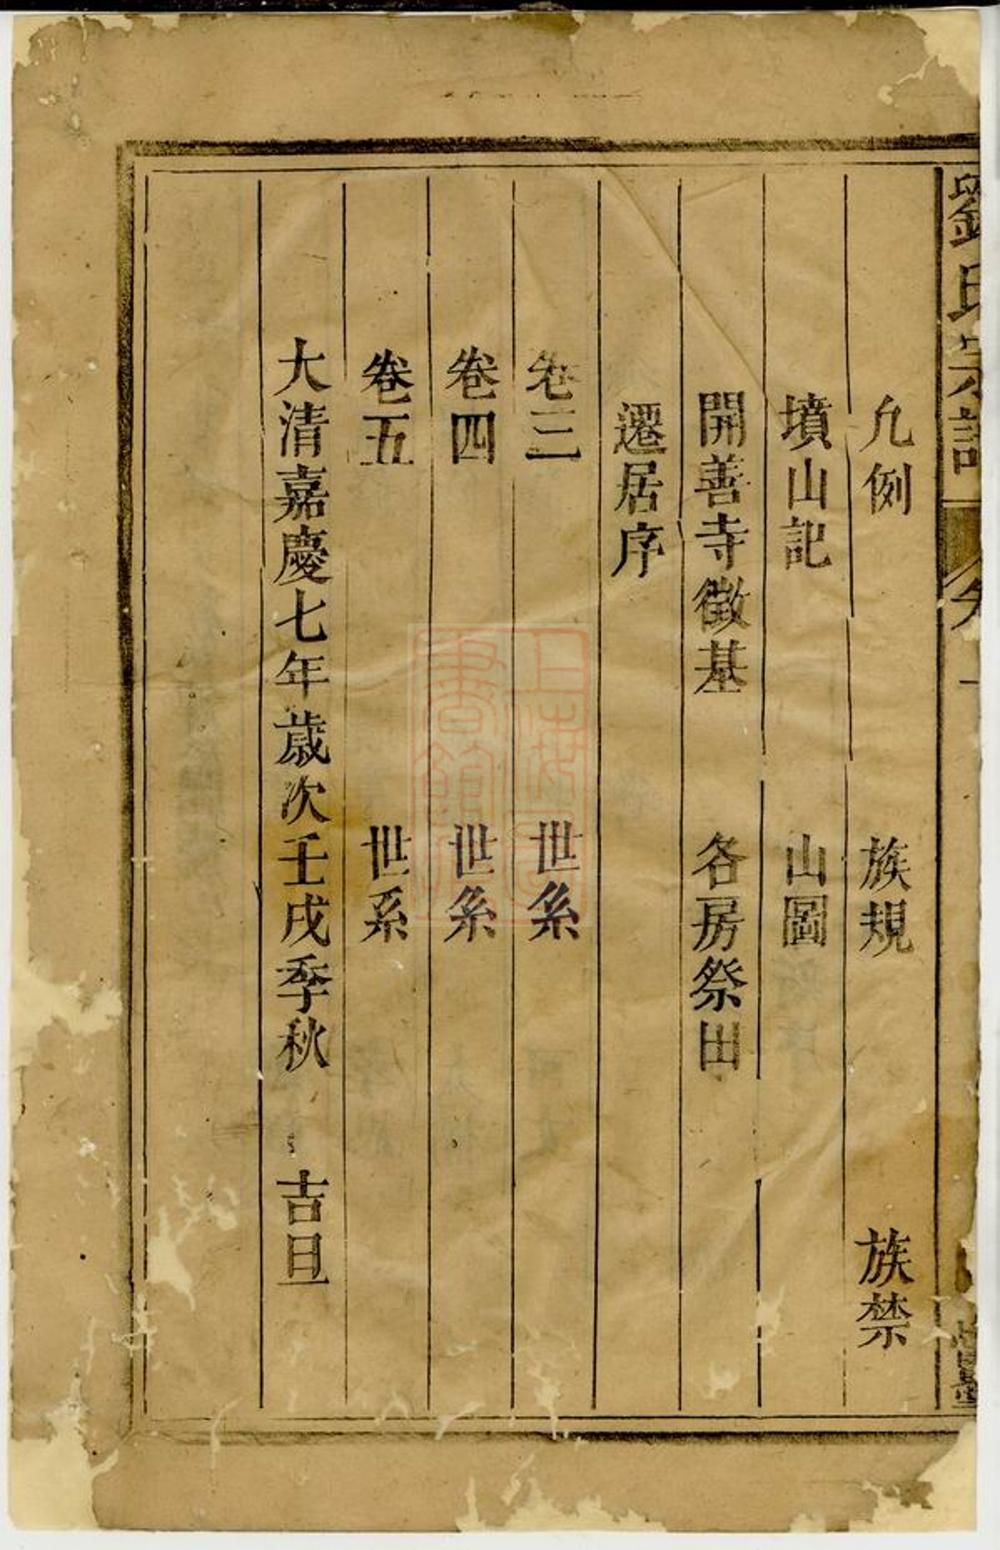 劉氏宗譜 卷一
凡例 族規 族禁
墳山記 山圖
開善寺徵基 各房祭田
遷居序
卷三 世系
卷四 世系
卷五 世系
大清嘉慶七年歲次壬戌季秋 吉旦
上海圖書館藏